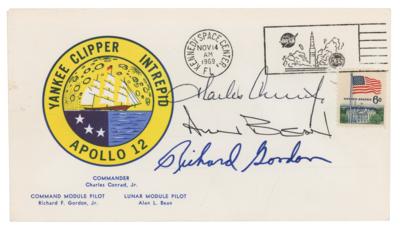 YANKEE CLIPPER INTREPID
APOLLO 12
KENNEDY SPACE CENTER,
NOV 14
AM
1969
FL
UNITED STATES 6¢
Charles Conrad Jr.
Alan Bean
Richard Gordon
COMMANDER
Charles Conrad, Jr.
COMMAND MODULE PILOT LUNAR MODULE PILOT
Richard F. Gordon, Jr. Alan L. Bean